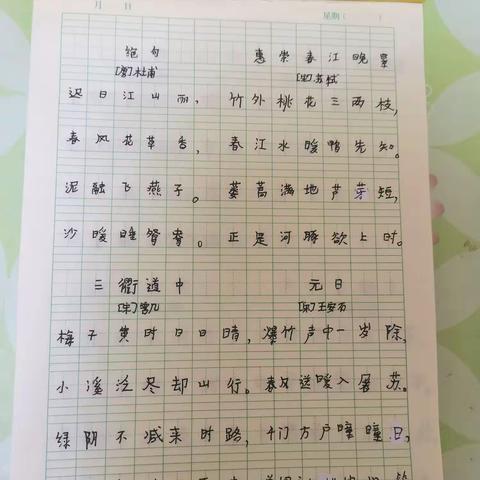 月 日 星期（ ）
绝句 惠崇春江晚景
[唐]杜甫 [宋]苏轼
迟日江山丽， 竹外桃花三两枝，
春风花草香， 春江水暖鸭先知。
泥融飞燕子。 蒌蒿满地芦芽短，
沙暖睡鸳鸯。 正是河豚欲上时。
三衢道中 元日
[宋]曾几 [宋]王安石
梅子黄时日日晴， 爆竹声中一岁除，
小溪泛尽却山行。 春风送暖入屠苏。
绿阴不减来时路， 千门万户曈曈日，